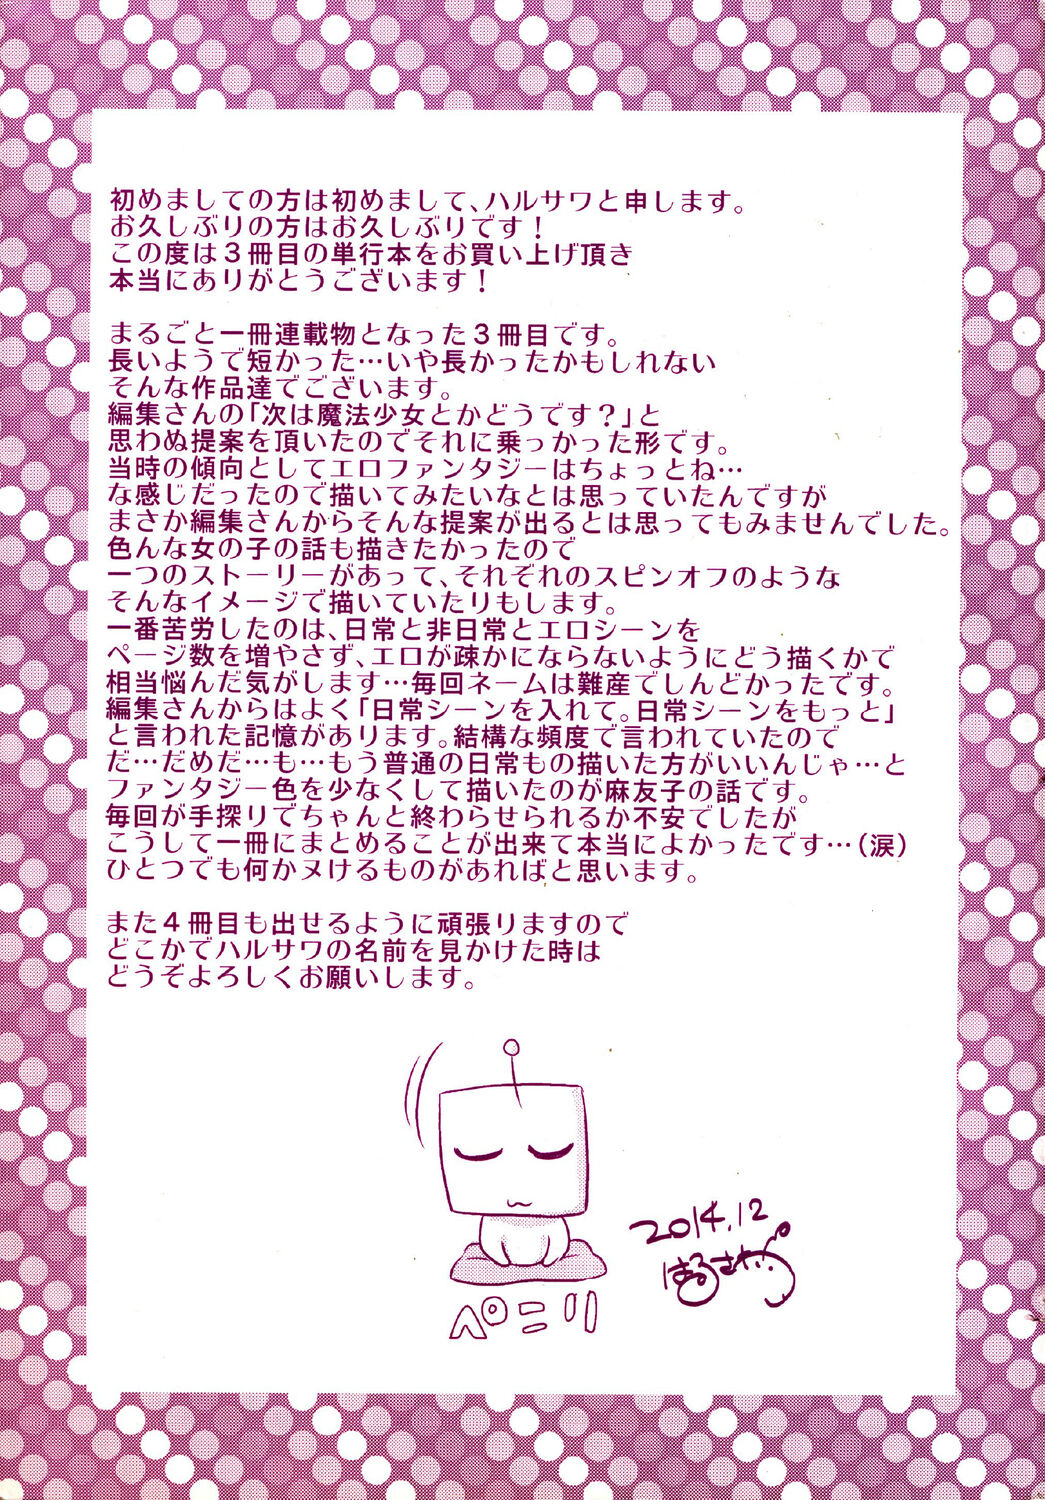 初めましての方は初めまして、ハルサワと申します。
お久しぶりの方はお久しぶりです！
この度は３冊目の単行本をお買い上げ頂き
本当にありがとうございます！
まるごと一冊連載物となった３冊目です。
長いようで短かった…いや長かったかもしれない
そんな作品達でございます。
編集さんの「次は魔法少女とかどうです？」と
思わぬ提案を頂いたのでそれに乗っかった形です。
当時の傾向としてエロファンタジーはちょっとね…
な感じだったので描いてみたいなとは思っていたんですが
まさか編集さんからそんな提案が出るとは思ってもみませんでした。
色んな女の子の話も描きたかったので
一つのストーリーがあって、それぞれのスピンオフのような
そんなイメージで描いていたりもします。
一番苦労したのは、日常と非日常とエロシーンを
ページ数を増やさず、エロが疎かにならないようにどう描くかで
相当悩んだ気がします…毎回ネームは難産でしんどかったです。
編集さんからはよく「日常シーンを入れて。日常シーンをもっと」
と言われた記憶があります。結構な頻度で言われていたので
だ…だめだ…も…もう普通の日常もの描いた方がいいんじゃ…と
ファンタジー色を少なくして描いたのが麻友子の話です。
毎回が手探りでちゃんと終わらせられるか不安でしたが
こうして一冊にまとめることが出来て本当によかったです…（涙）
ひとつでも何かヌけるものがあればと思います。
また４冊目も出せるように頑張りますので
どこかでハルサワの名前を見かけた時は
どうぞよろしくお願いします。
2014.12
はるさわ
ペニリ